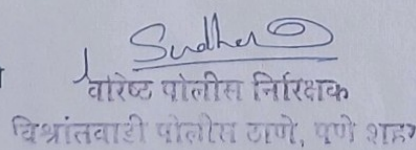 Sudher
वरिष्ठ पोलीस निरिक्षक
विश्रांतवाडी पोलीस ठाणे, पुणे शहर